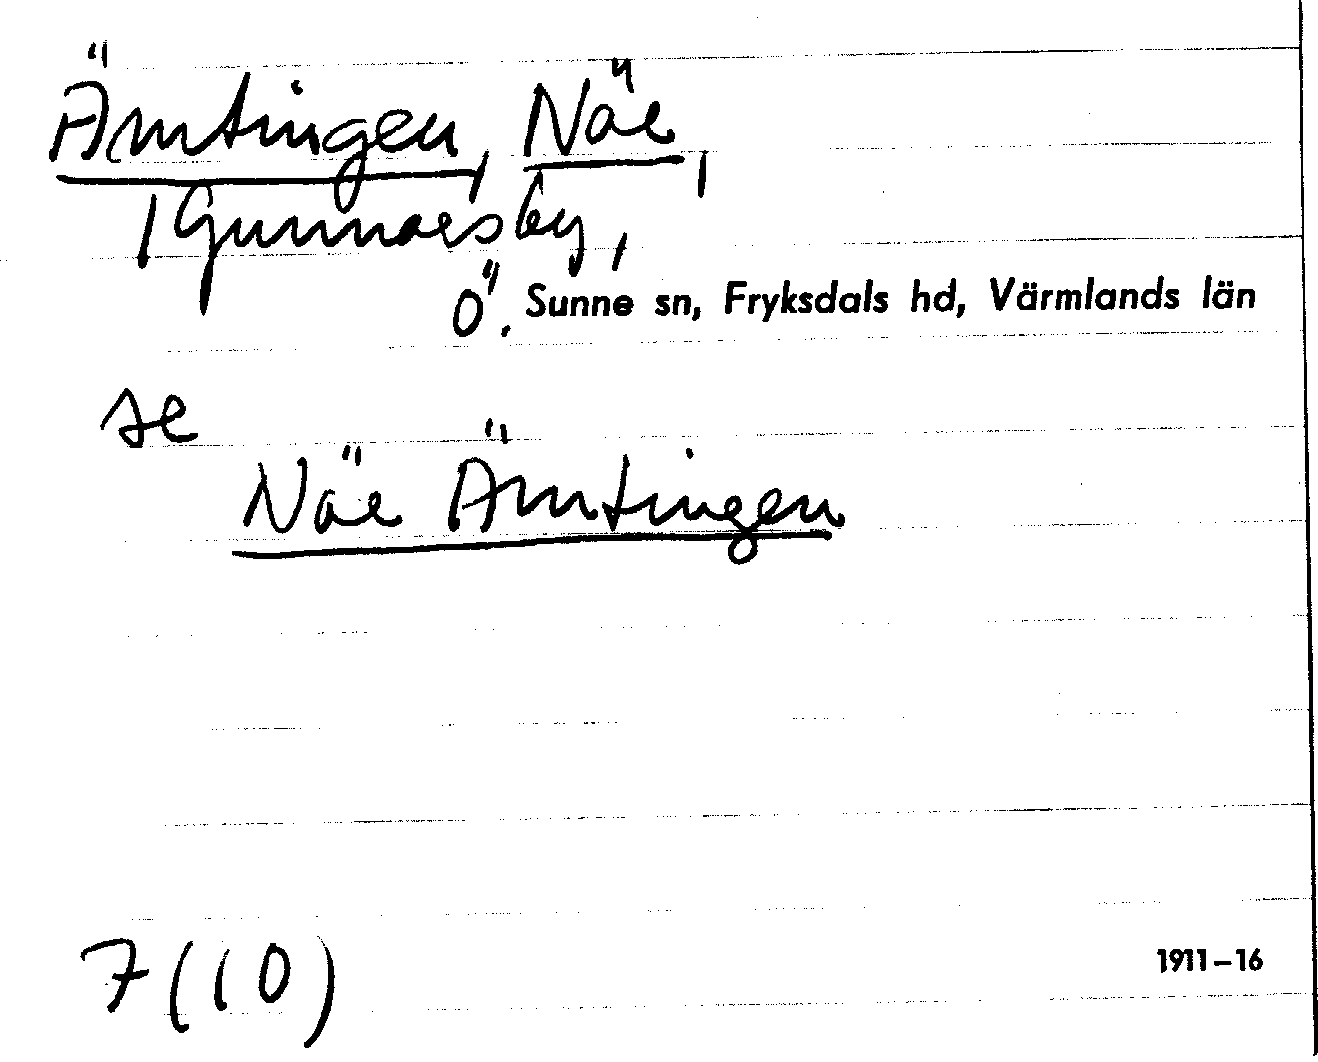 Ämtingen, Näe,
Gunnarsby,
Ö. Sunne sn, Fryksdals hd, Värmlands län
se
Näe Ämtingen
7(10)
1911–16